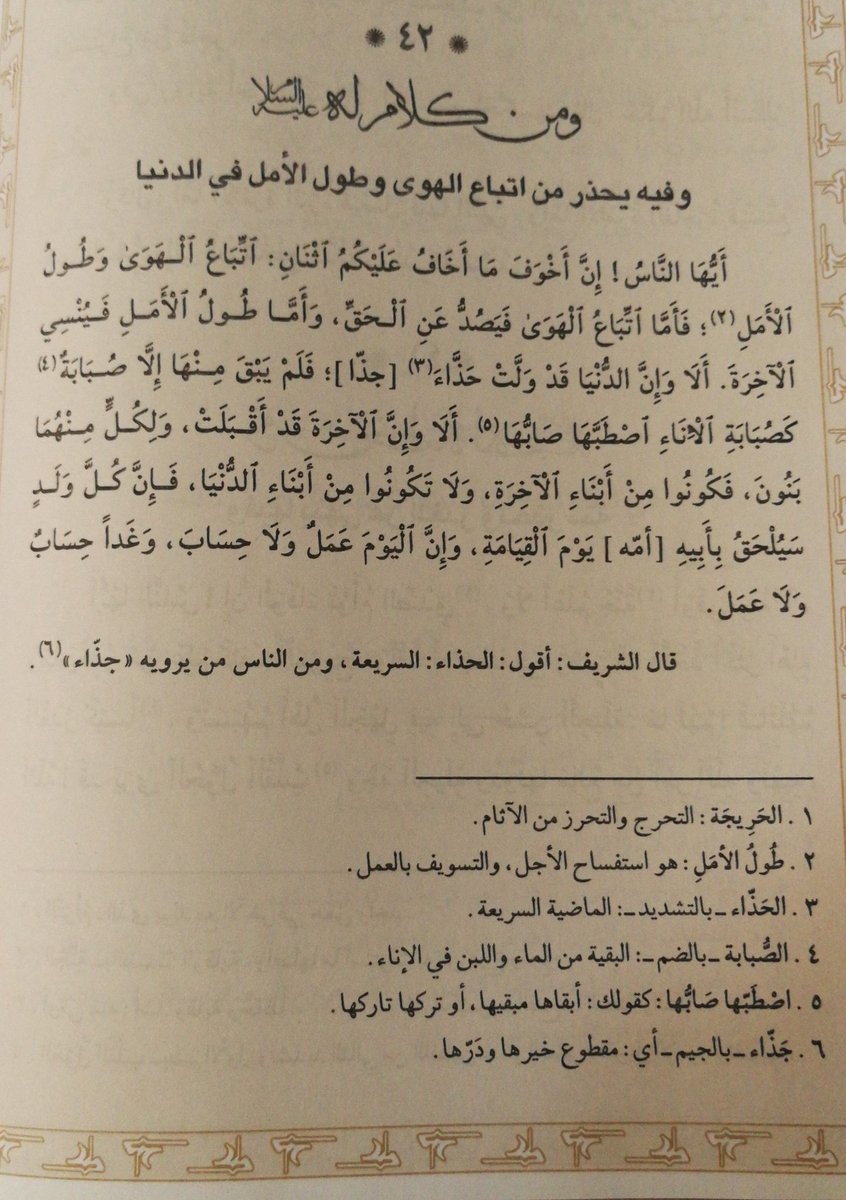 * ٤٢ *
ومن كلام له عليه السلام
وفيه يحذر من اتباع الهوى وطول الأمل في الدنيا
أَيُّهَا النَّاسُ! إِنَّ أَخْوَفَ مَا أَخَافُ عَلَيْكُمُ ٱثْنَانِ: ٱتِّبَاعُ ٱلْهَوَىٰ وَطُولُ
ٱلْأَمَلِ(٢)؛ فَأَمَّا ٱتِّبَاعُ ٱلْهَوَىٰ فَيَصُدُّ عَنِ ٱلْحَقِّ، وَأَمَّا طُولُ ٱلْأَمَلِ فَيُنْسِي
ٱلْآخِرَةَ. أَلَا وَإِنَّ الدُّنْيَا قَدْ وَلَّتْ حَذَّاءَ(٣) [جذّا]؛ فَلَمْ يَبْقَ مِنْهَا إِلَّا صُبَابَةٌ(٤)
كَصُبَابَةِ ٱلْإِنَاءِ ٱصْطَبَّهَا صَابُّهَا(٥). أَلَا وَإِنَّ ٱلْآخِرَةَ قَدْ أَقْبَلَتْ، وَلِكُلٍّ مِنْهُمَا
بَنُونَ، فَكُونُوا مِنْ أَبْنَاءِ ٱلْآخِرَةِ، وَلَا تَكُونُوا مِنْ أَبْنَاءِ ٱلدُّنْيَا، فَإِنَّ كُلَّ وَلَدٍ
سَيُلْحَقُ بِأَبِيهِ [أمّه] يَوْمَ ٱلْقِيَامَةِ، وَإِنَّ ٱلْيَوْمَ عَمَلٌ وَلَا حِسَابَ، وَغَداً حِسَابٌ
وَلَا عَمَلَ.
قال الشريف: أقول: الحذاء: السريعة، ومن الناس من يرويه «جذّاء»(٦).
١. الحَرِيجَة: التحرج والتحرز من الآثام.
٢. طُولُ الأمَلِ: هو استفساح الأجل، والتسويف بالعمل.
٣. الحَذّاء ـ بالتشديد ـ: الماضية السريعة.
٤. الصُّبابة ـ بالضم ـ: البقية من الماء واللبن في الإناء.
٥. اصْطَبّها صَابُّها: كقولك: أبقاها مبقيها، أو تركها تاركها.
٦. جَذّاء ـ بالجيم ـ أي: مقطوع خيرها ودَرّها.